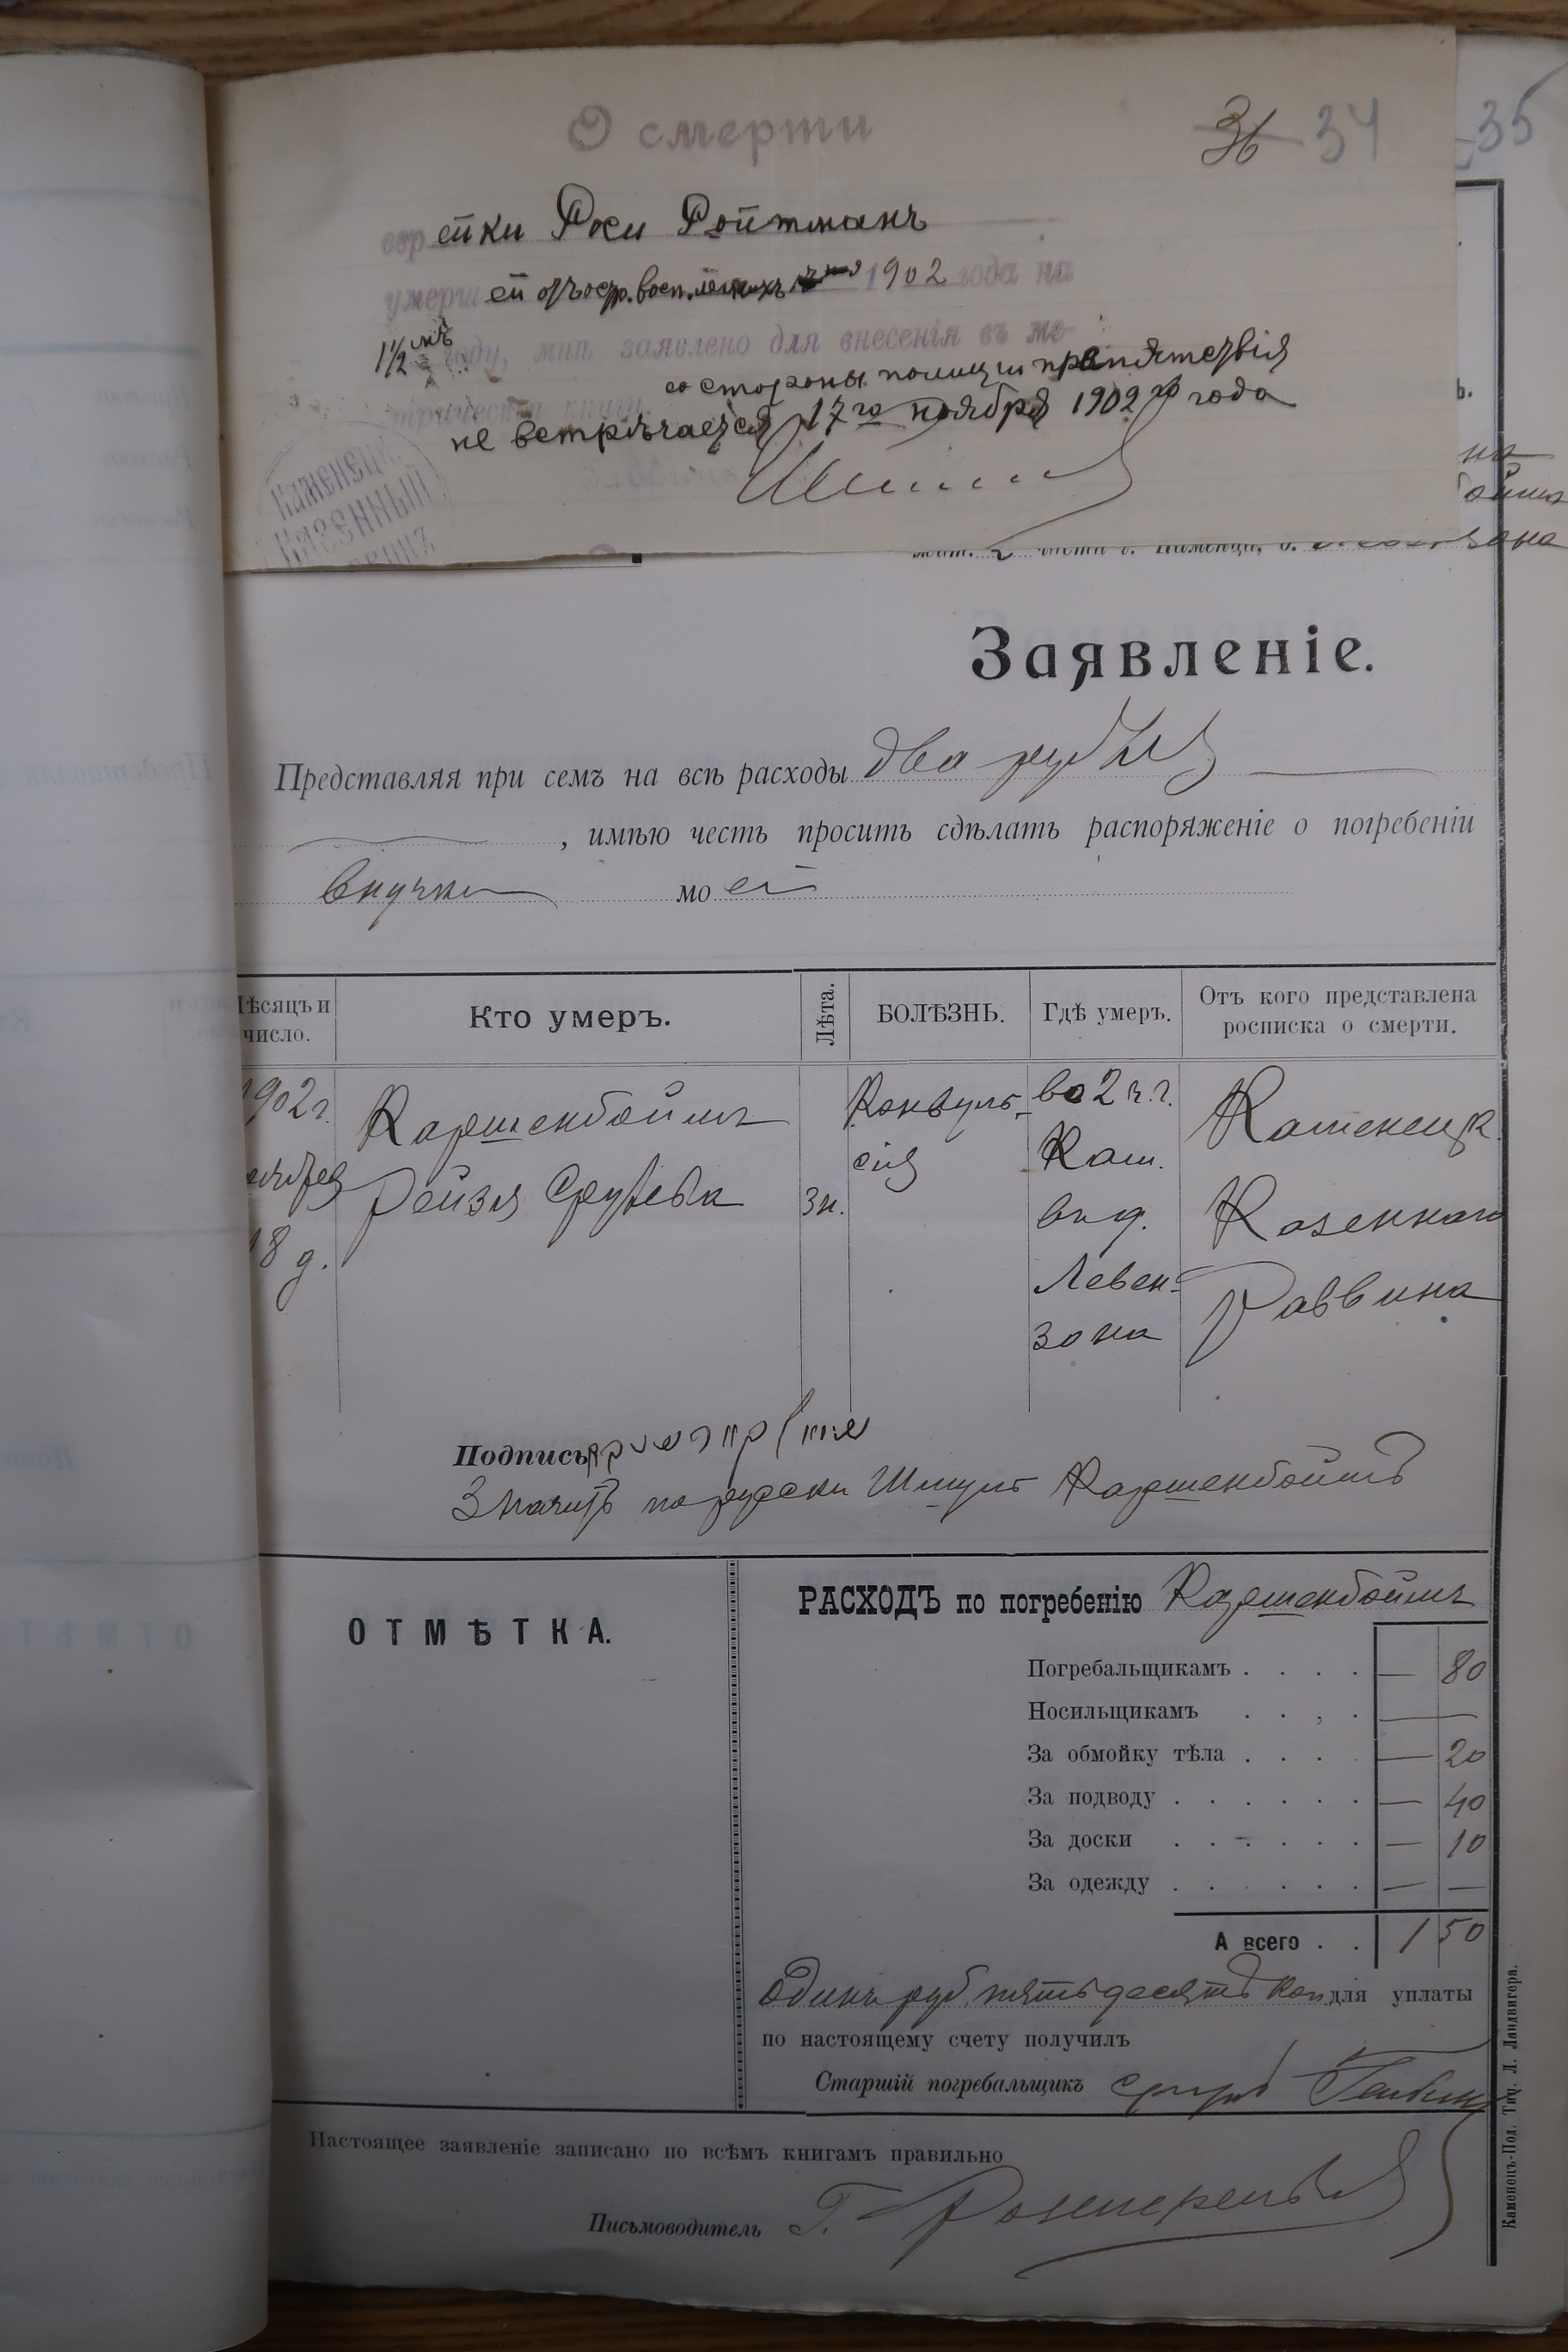 О смерти
36 34
35
еврейки Рoси Ройтманъ
умершей отъ воспл. легкихъ 1902 года на
1½ году, мнѣ заявлено для внесенія въ ме-
трическія книги.
со стороны полиціи препятствія
не встрѣчается 17го ноября 1902 года
КАМЕНЕЦК.
КАЗЕННЫЙ
Заявленіе.
Представляя при семъ на всѣ расходы два рубля
, имѣю честь просить сдѣлать распоряженіе о погребеніи
внучки моей
Мѣсяцъ и число.
Кто умеръ.
Лѣта.
БОЛѢЗНЬ.
Гдѣ умеръ.
Отъ кого представлена
росписка о смерти.
1902 г.
ноября
18 д.
Каршенбоймъ
Рейзя Срулева
3 н.
Конвуль-
сія
во 2 ч. г.
Кам.
в д.
Левен-
зона
Каменецк.
Казеннаго
Раввина
Подпись
Значитъ по русски Шмуль Каршенбоймъ
ОТМѢТКА.
РАСХОДЪ по погребенію Каршенбоймъ
Погребальщикамъ . . . . — 80
Носильщикамъ . . , . —
За обмойку тѣла . . . . — 20
За подводу . . . . . . — 40
За доски . . . . . . — 10
За одежду . . . . . . — —
А всего . . 1 50
Одинъ руб. пятьдесятъ коп для уплаты
по настоящему счету получилъ
Старшій погребальщикъ
Настоящее заявленіе записано по всѣмъ книгамъ правильно
Письмоводитель Г.
Каменецъ-Под. Тип. Л. Ландвигера.